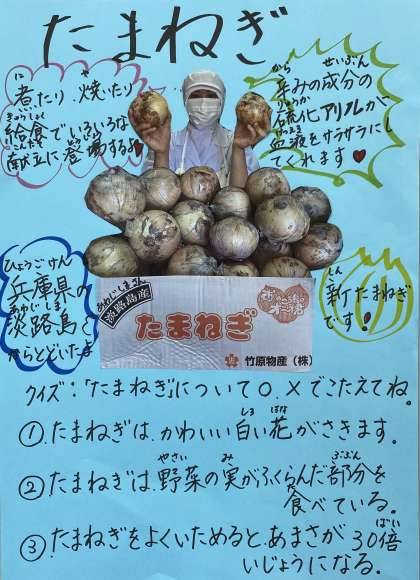 たまねぎ
煮たり、焼いたり
給食でいろいろな
献立に登場するよ
辛みの成分の
硫化アリルが
血液をサラサラにし
てくれます
兵庫県の
淡路島
からとどいたよ
淡路島産
たまねぎ
竹原物産(株)
新たまねぎ
です!
クイズ:「たまねぎ」について○、×でこたえてね。
①たまねぎは、かわいい白い花がさきます。
②たまねぎは、野菜の実がふくらんだ部分を
食べている。
③たまねぎをよくいためると、あまさが30倍
いじょうになる。